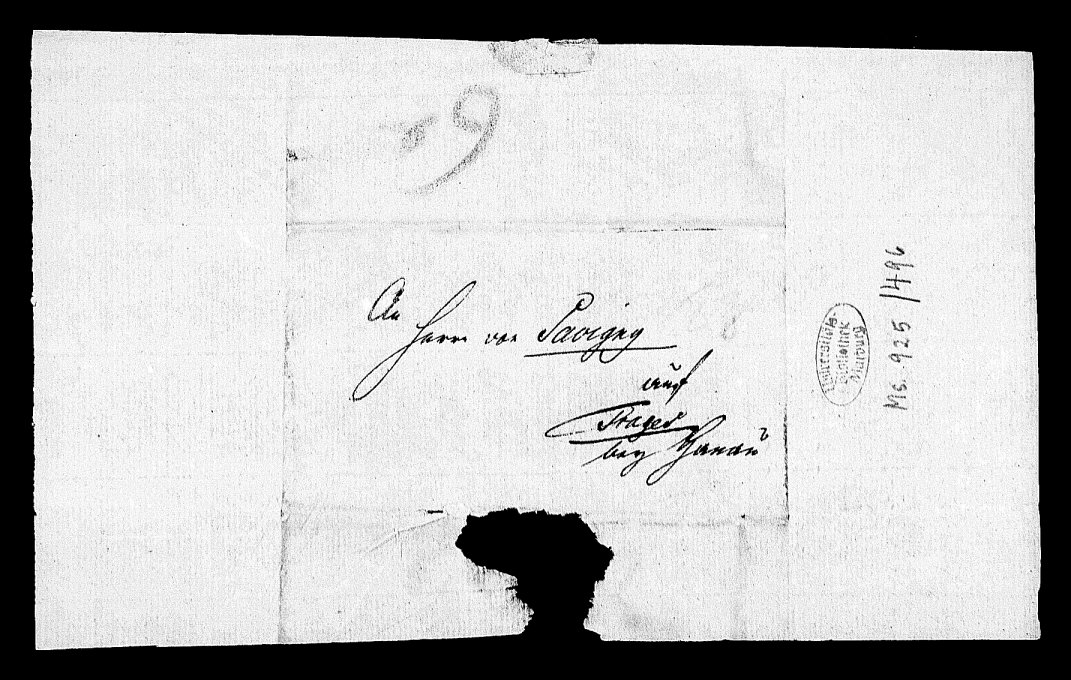 An
Herrn von Savigny
auf
Trages
bey Hanau
Universitäts-
Bibliothek
Marburg
Ms. 925/496